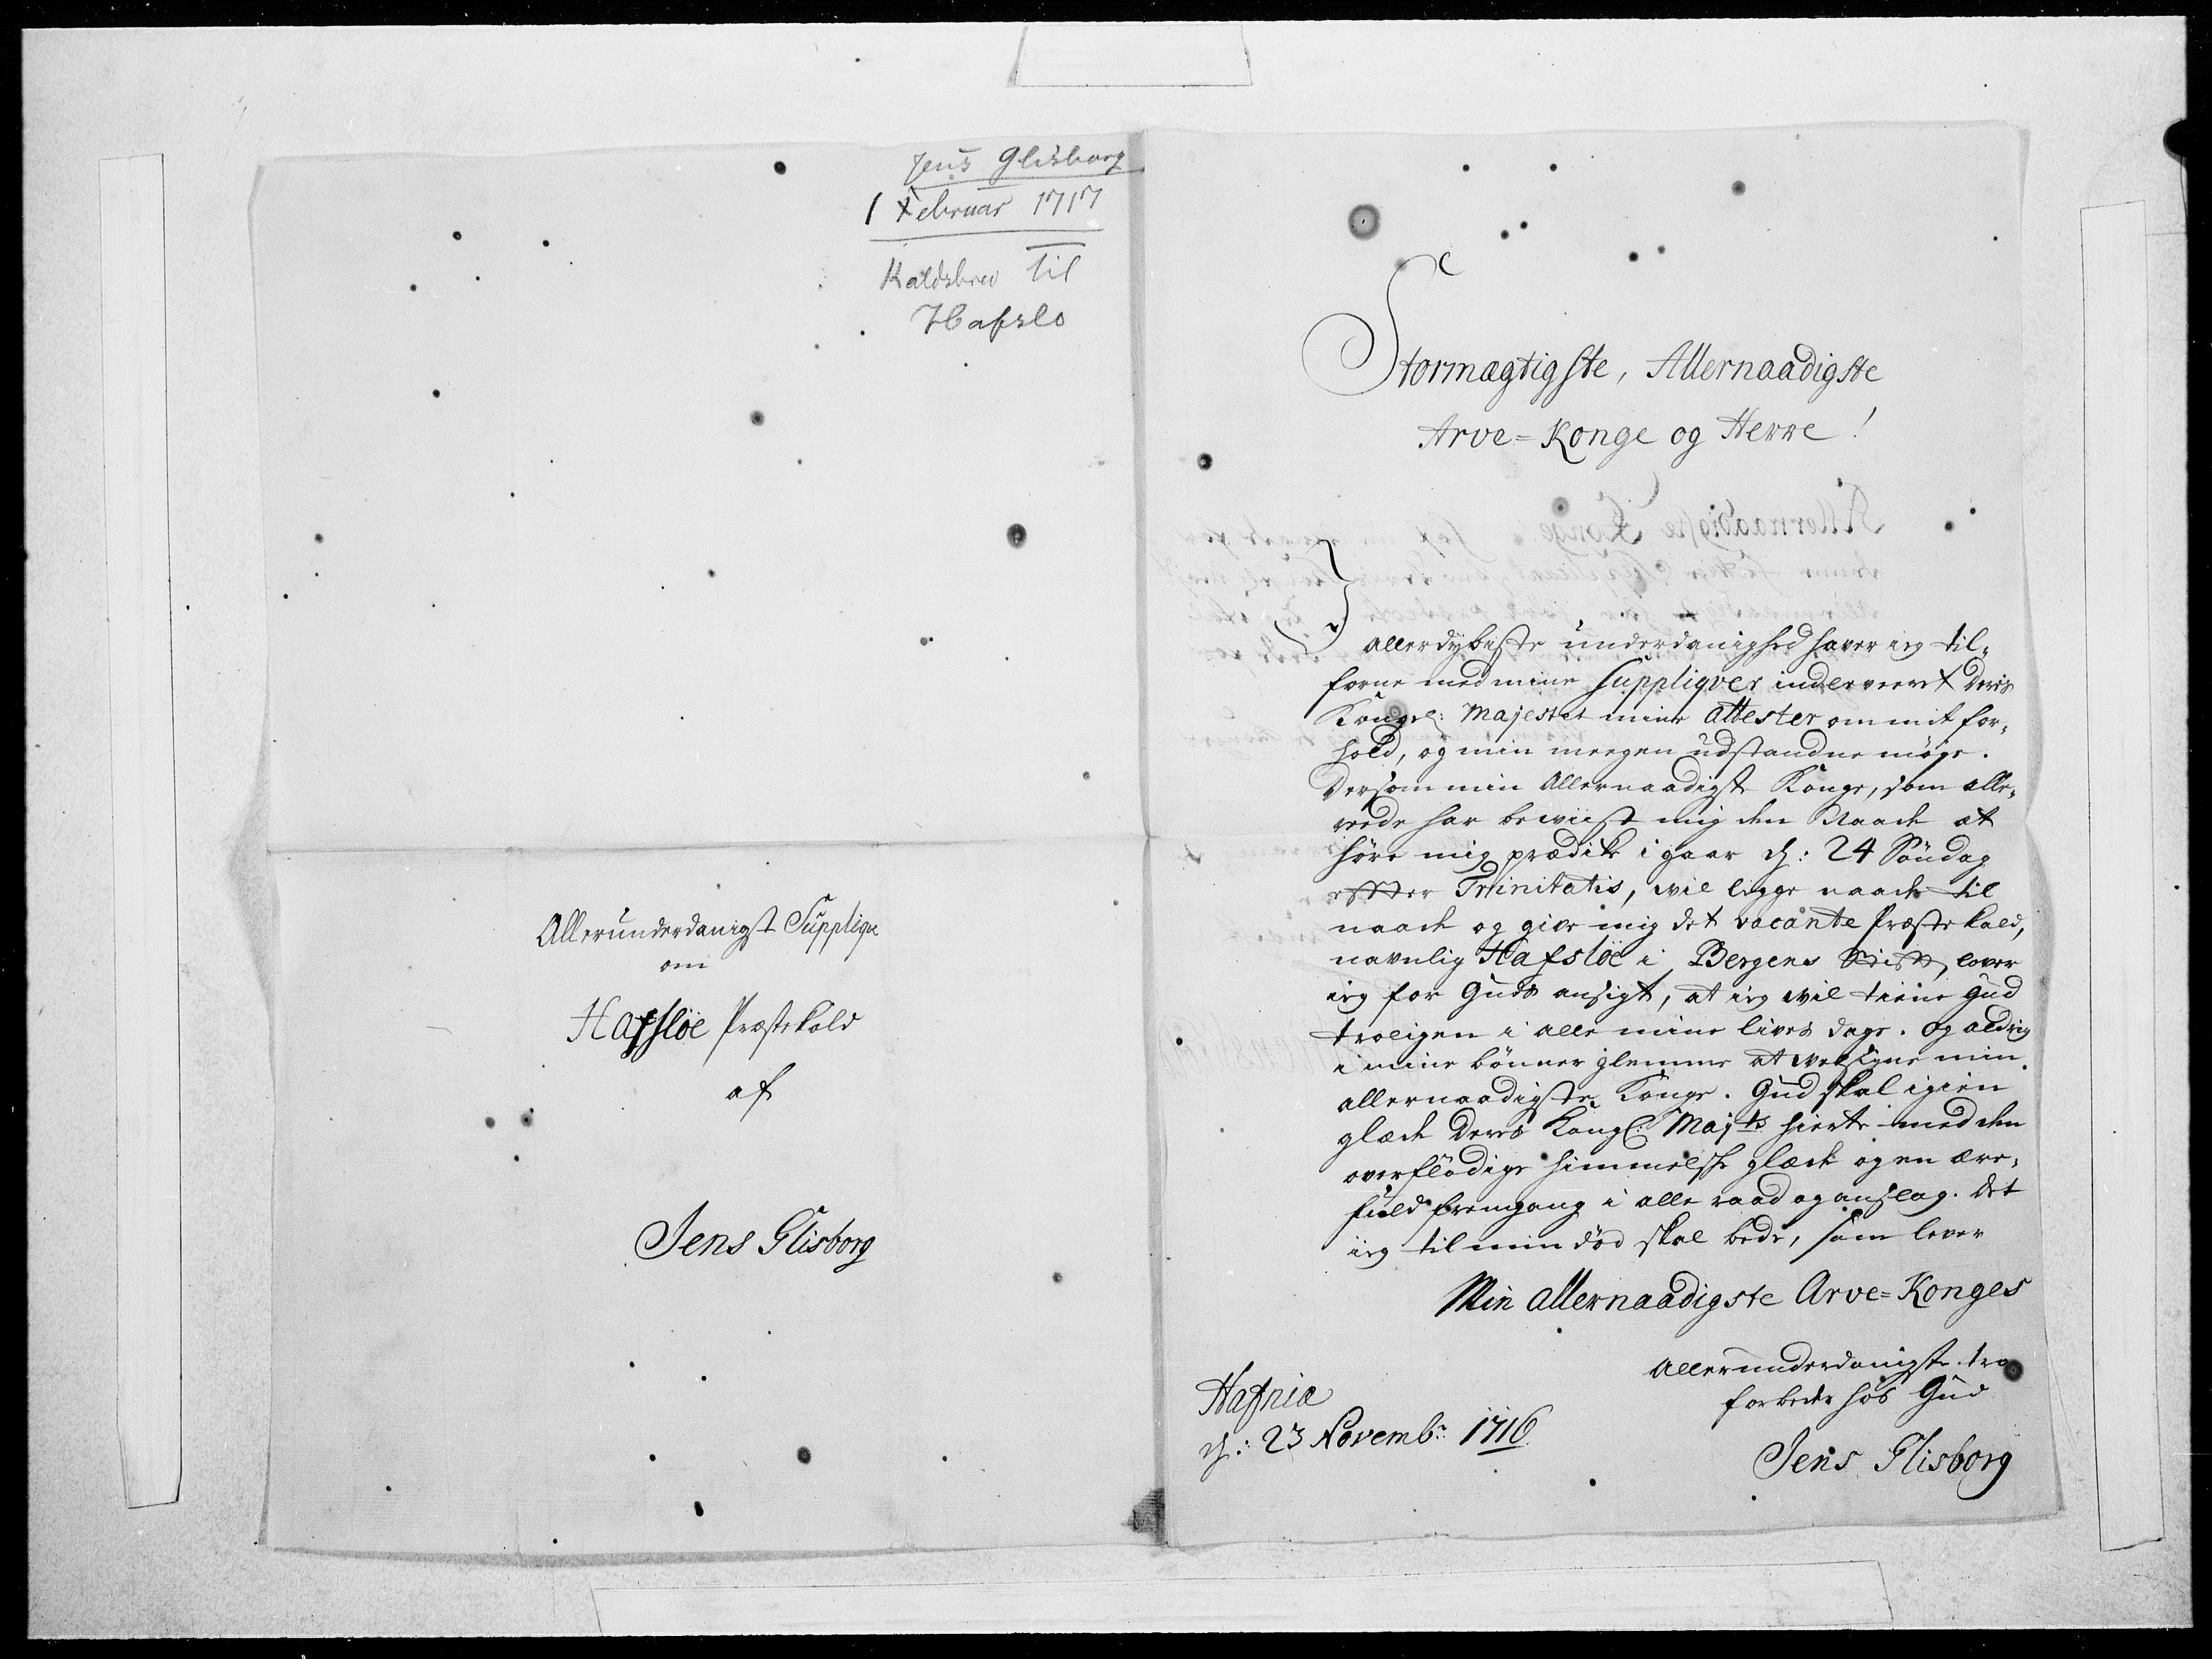 Jens Glisborg
1 Februar 1717
Kaldsbrev til
Hafslo
Allerunderdanigst Supplique
om
Hafsløe Præstekald
af
Jens Glisborg
Stormægtigste, Allernaadigste
Arve-Konge og Herre!
I allerdybeste underdanighed haver ieg til-
forne med mine Suppliqver inderveret Deris
Kongel: Majestet mine Attester om mit for-
hold, og min megen udstandne møye.
Dersom min Allernaadigst Konge, som alle-
rede har beviist mig den Naade at
høre mig prædike i gaar d: 24 Søndag
effter Trinitatis, vil legge naade til
naade og give mig det vacante Præste kald,
navnlig Hafsløe i Bergens Stifft, lover
ieg for Guds ansigt, at ieg vil tiene Gud
troligen i alle mine lives dage. og aldrig
i mine bønner glemme at velsigne min
allernaadigste Konge. Gud skal igien
glæde Deres Kongl: Majts hierte med den
overflødige himmelske glæde og en ære-
fuld fremgang i alle raad og anslag. det
ieg til min død skal bede, som lever
Min allernaadigste Arve-Konges
Allerunderdanigste tro
forbeder hos Gud
Jens Glisborg
Hafniæ
d: 23 Novembr: 1716